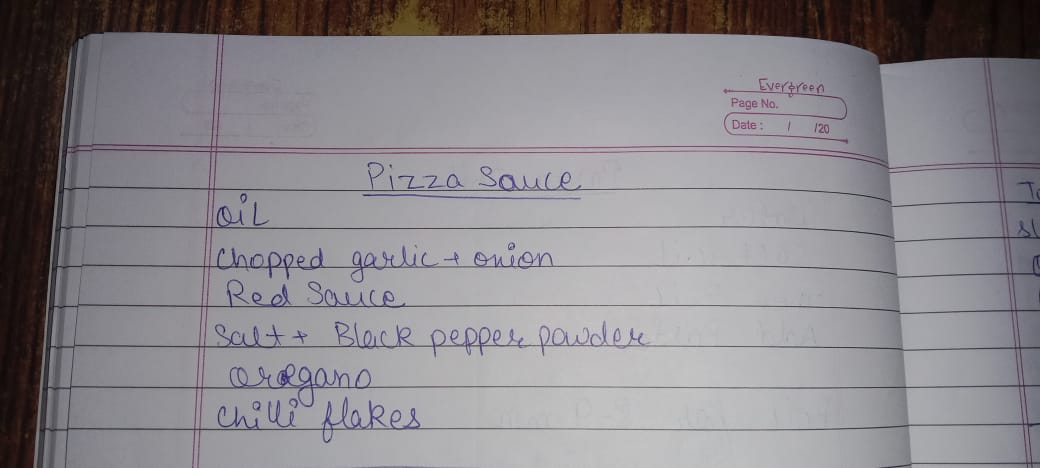 Evergreen
Page No.
Date : / /20
Pizza Sauce
Oil
Chopped garlic + onion
Red Sauce
Salt + Black pepper powder
Oregano
Chilli flakes